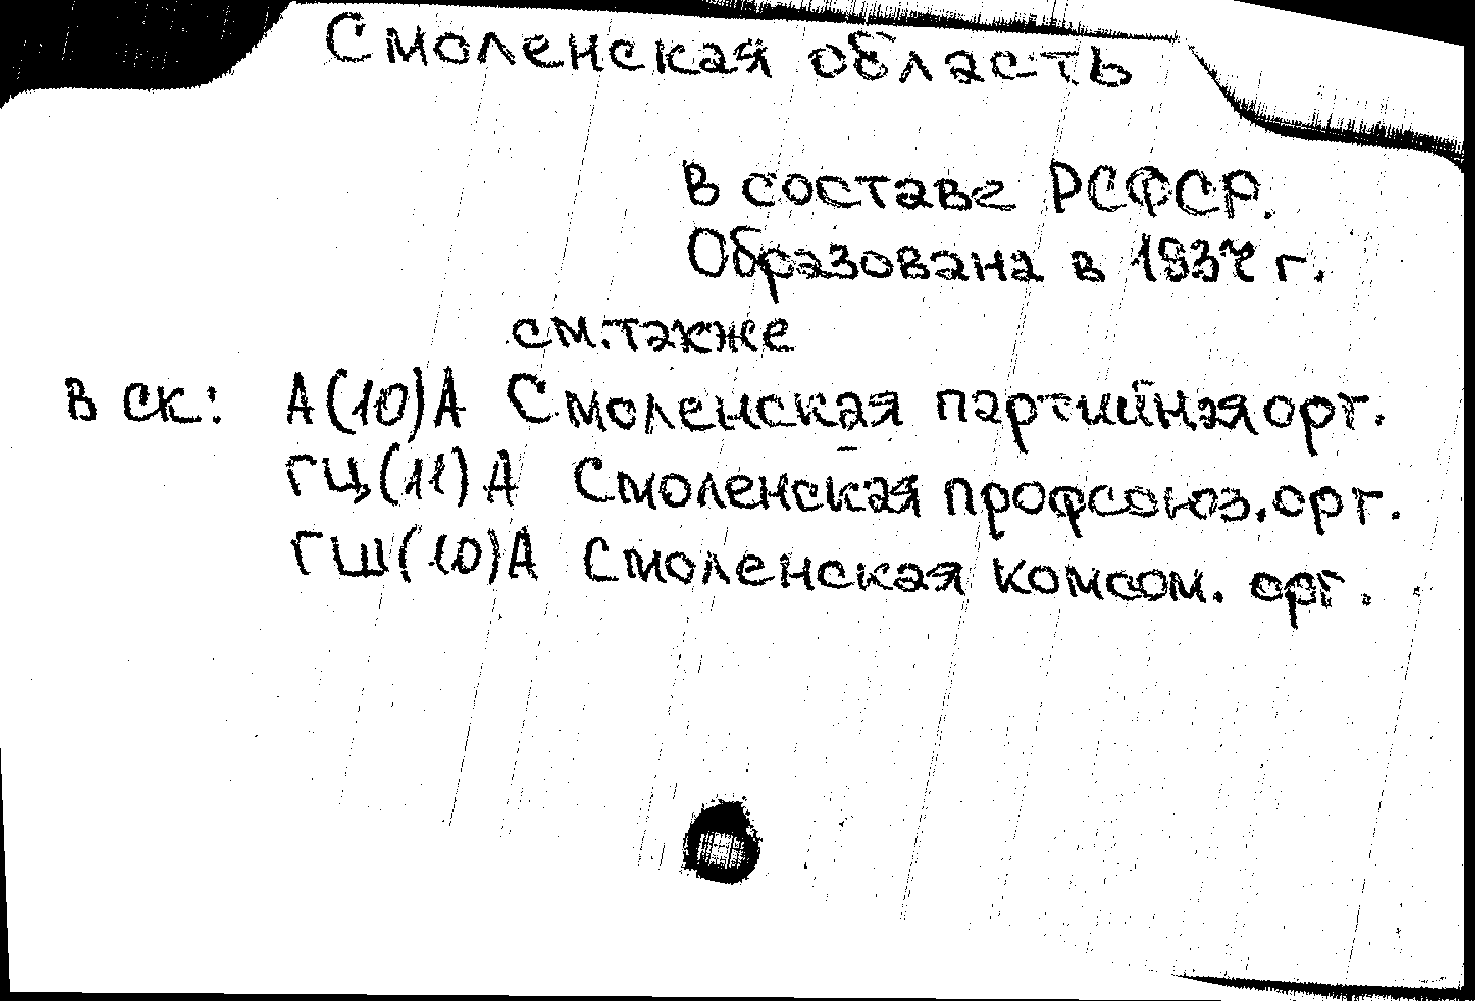 Смоленская область
В составе РСФСР.
Образована в 1937 г.
см. также
В СК: А(10)А Смоленская партийная орг.
ГЦ(11)А Смоленская профсоюз. орг.
ГШ(10)А Смоленская комсом. орг.